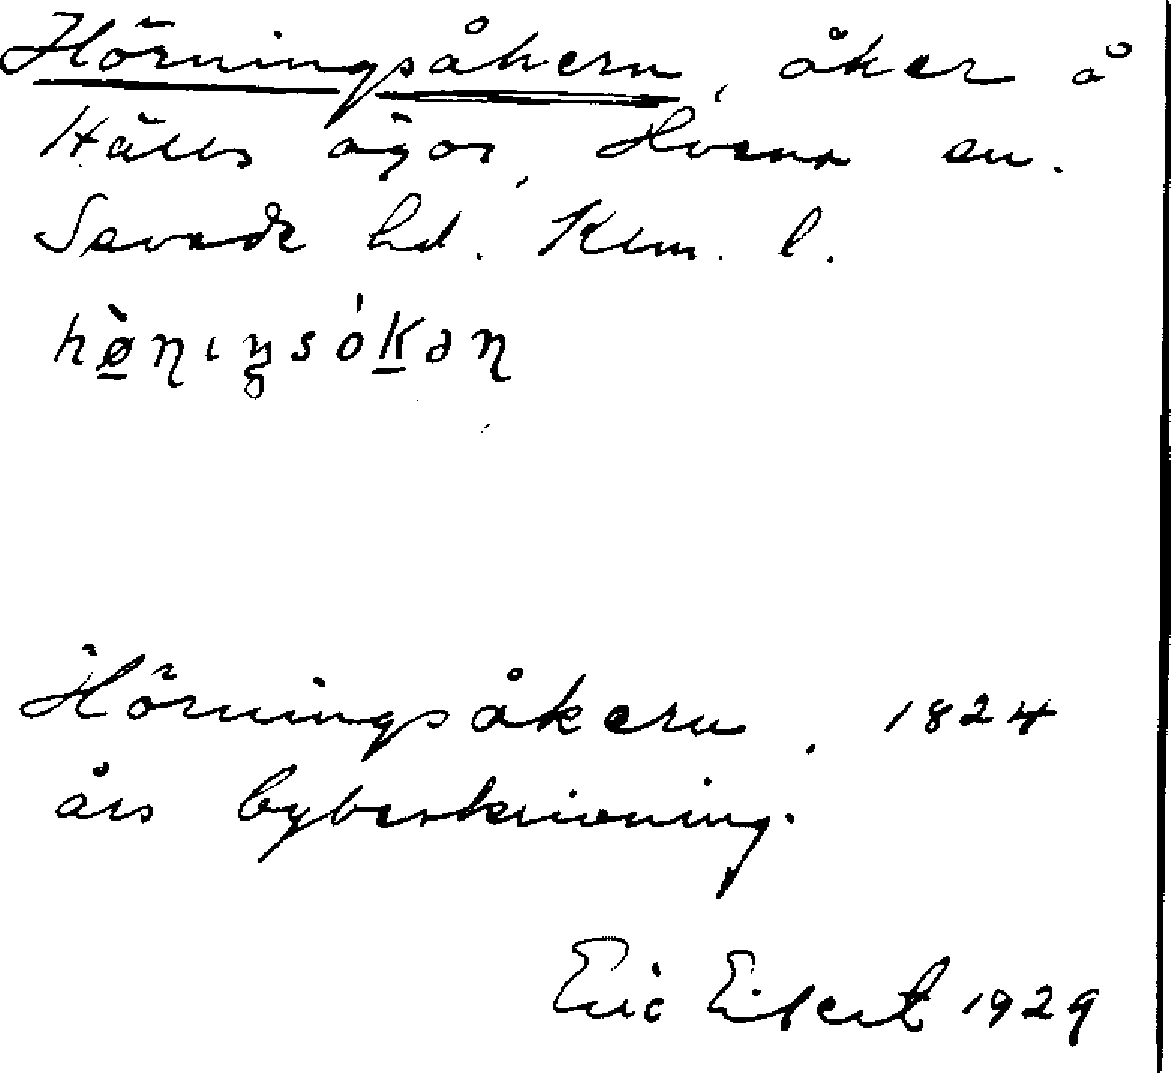 Hörningsåkern, åker å
Hälls ägor, Hvena sn.
Sevede hd. Klm. l.
hø̀ŋıŋsókəŋ
Hörningsåkern, 1824
års bybeskrivning.
Eric Eikert 1929